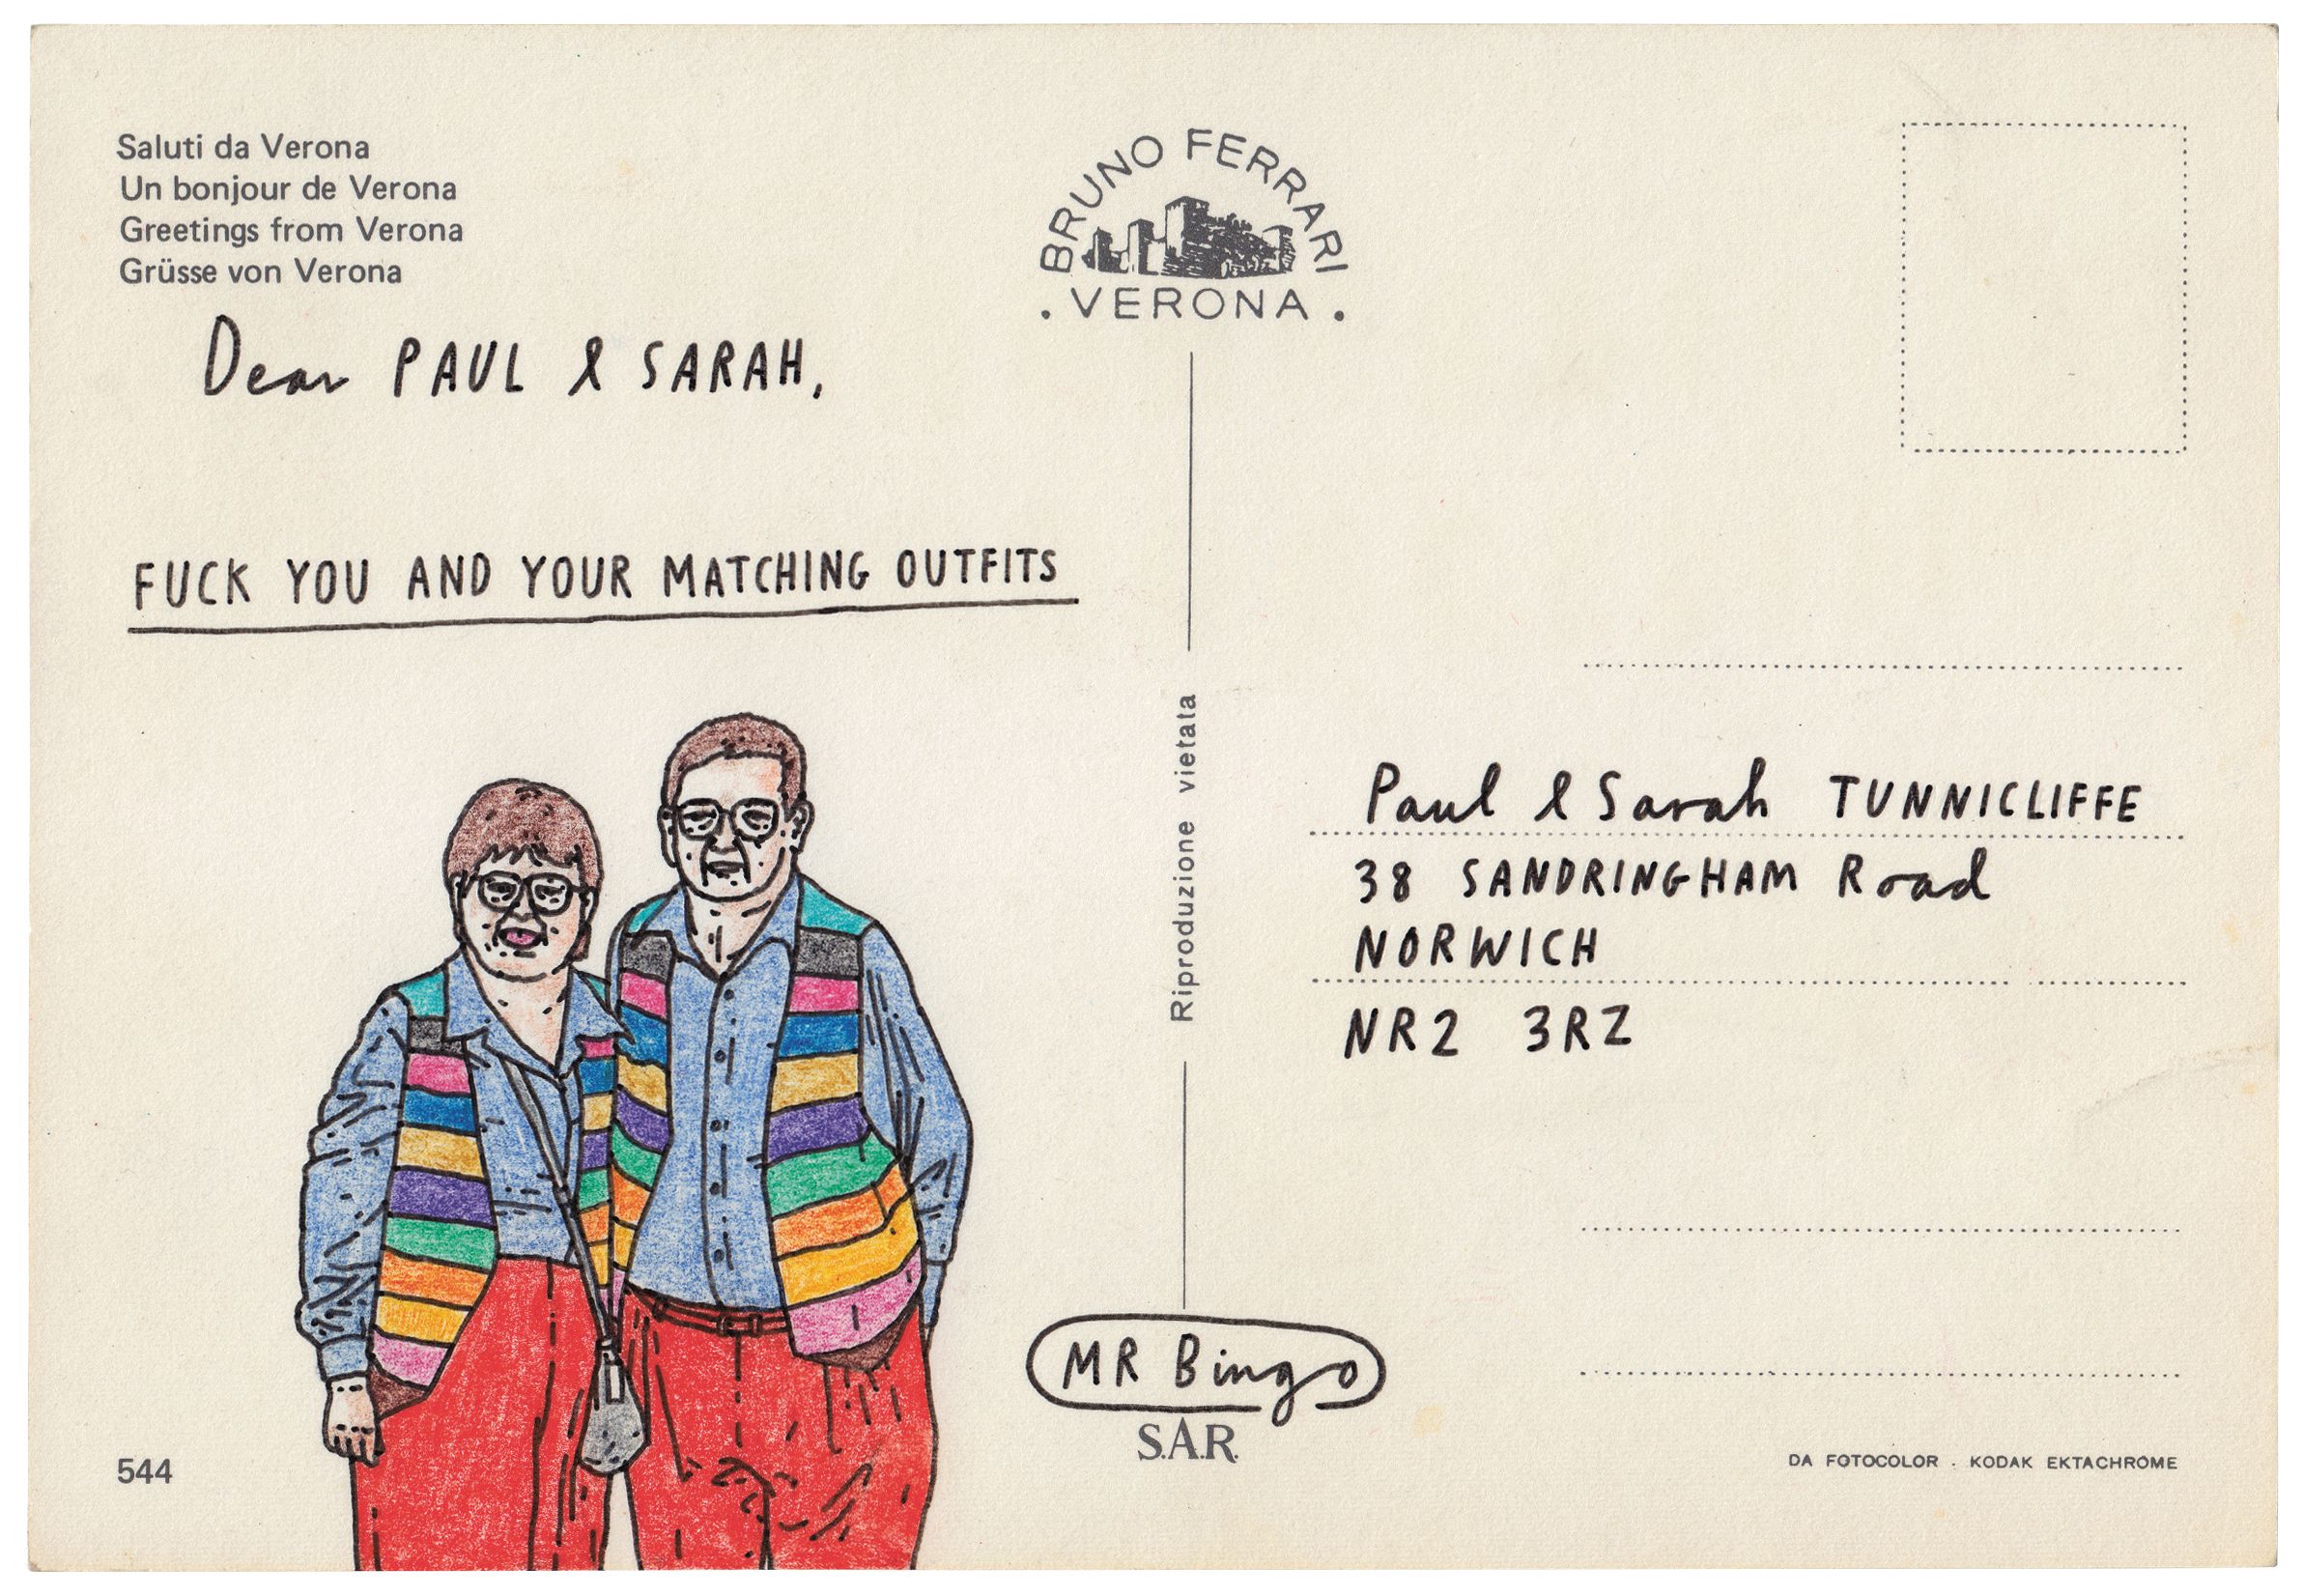 Saluti da Verona
Un bonjour de Verona
Greetings from Verona
Grüsse von Verona
Dear PAUL & SARAH,
FUCK YOU AND YOUR MATCHING OUTFITS
544
BRUNO FERRARI
. VERONA .
Riproduzione vietata
MR Bingo
S.A.R.
Paul & Sarah TUNNICLIFFE
38 SANDRINGHAM Road
NORWICH
NR2 3RZ
DA FOTOCOLOR . KODAK EKTACHROME